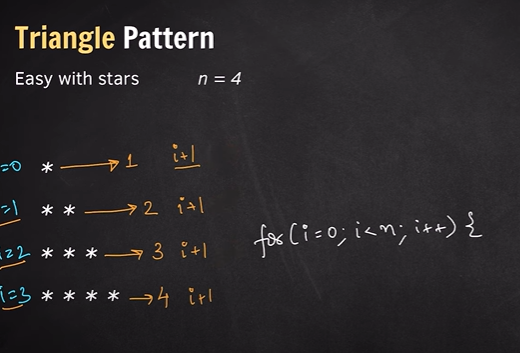 Triangle Pattern
Easy with stars n = 4
=0 * → 1 i+1
=1 * * → 2 i+1
i=2 * * * → 3 i+1
for(i=0; i<n; i++) {
i=3 * * * * → 4 i+1